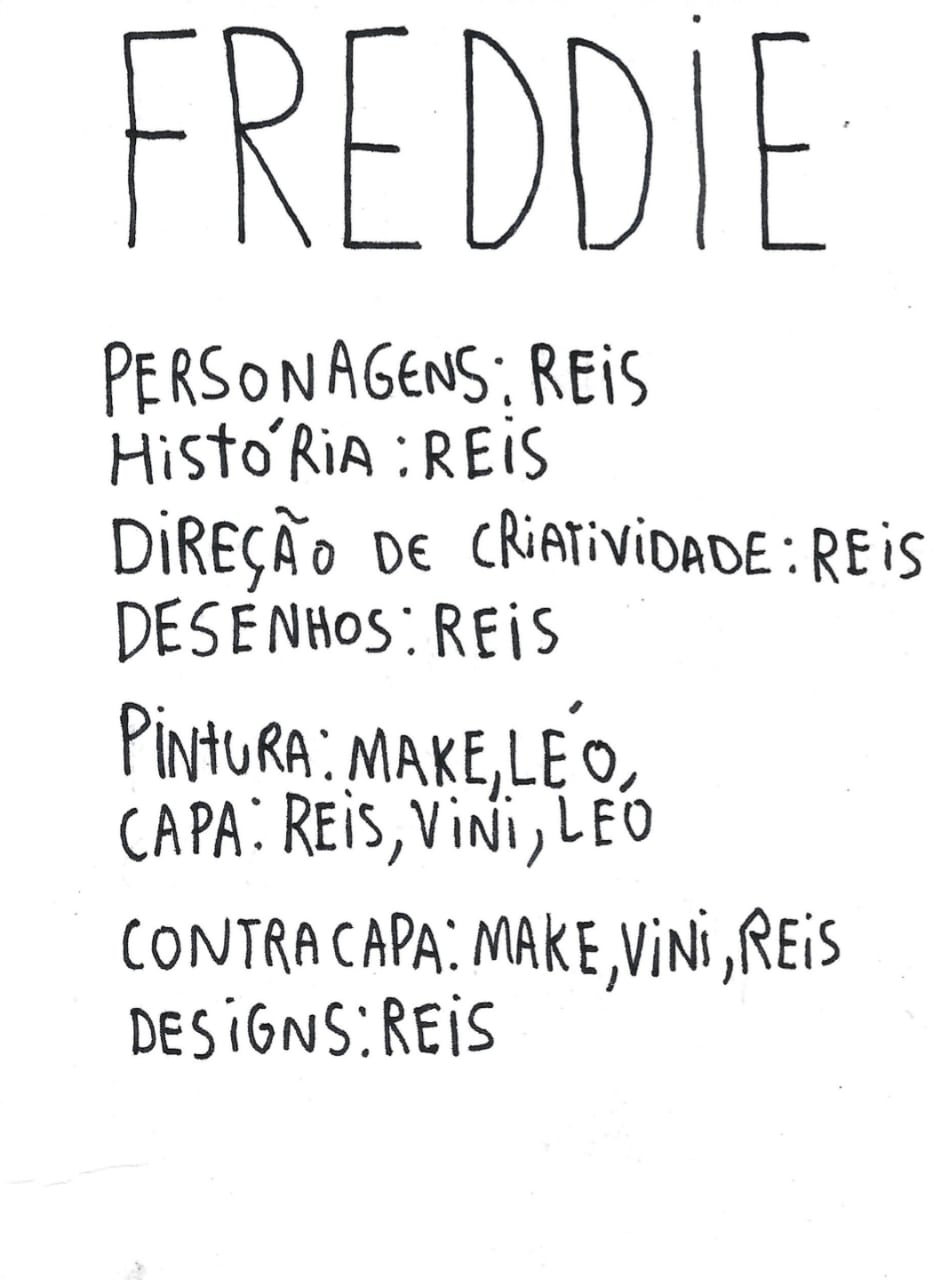 FREDDIE
PERSONAGENS: REIS
HISTÓRIA: REIS
DIREÇÃO DE CRIATIVIDADE: REIS
DESENHOS: REIS
PINTURA: MAKE, LÉO,
CAPA: REIS, VINI, LÉO
CONTRA CAPA: MAKE, VINI, REIS
DESIGNS: REIS